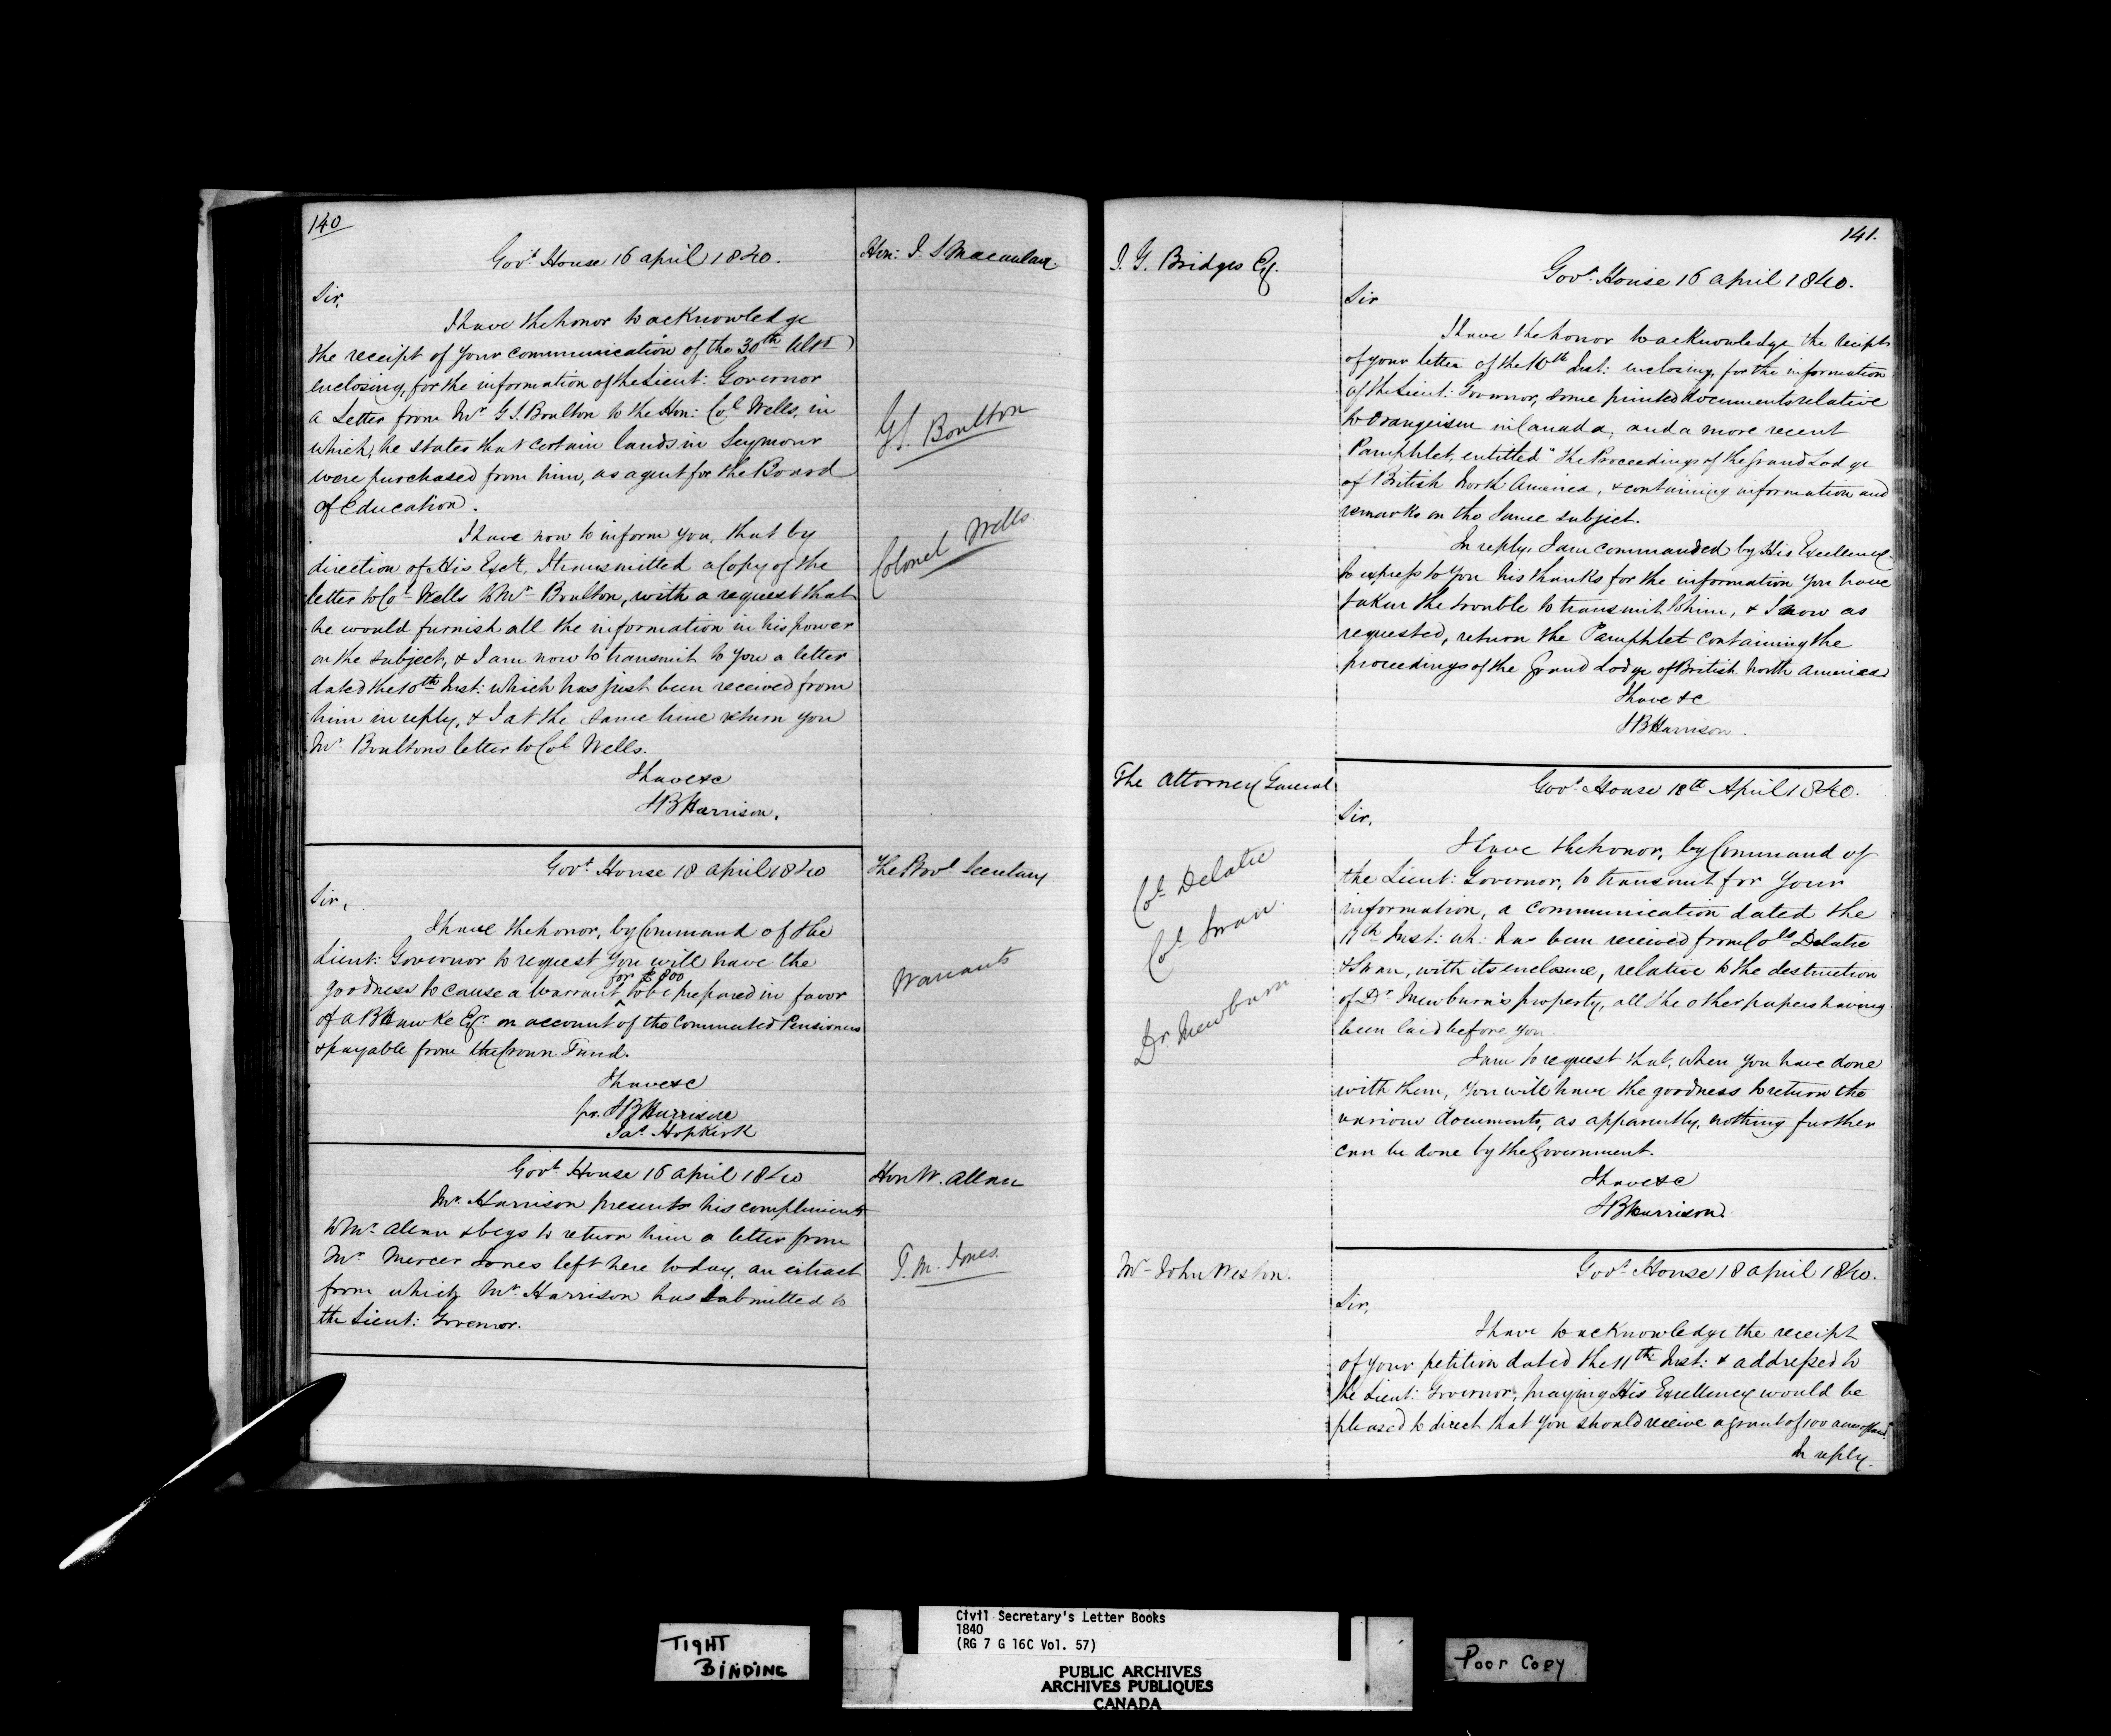 140
Govt. House 16 april 1840.
Hon: J. S Macaulay.
Sir,
I have the honor to acknowledge
the receipt of your communication of the 30th Ult
enclosing, for the information of the Lieut: Governor
a Letter from Mr G. S. Boulton to the Hon: Col Wells, in
which, he states that certain lands in Seymour
were purchased from him, as agent for the Board
of Education.
G S. Boulton
I have now to inform you, that by
direction of His Excy, I transmitted a Copy of the
letter to Col Wells to Mr Boulton, with a request that
he would furnish all the information in his power
on the subject, & I am now to transmit to you a letter
dated the 10th Inst: which has just been received from
him in reply, & I at the same time return you
Mr Boultons letter to Col Wells.
Colonel Wells
I have &c
S B Harrison.
Govt. House 18 april 1840
The Provl Secretary
Sir,
I have the honor, by Command of the
Lieut: Governor to request you will have the
for £800
goodness to cause a Warrant ^ to be prepared in favor
of A B Hawke Esq. on account of the Commuted Pensioners
& payable from the Crown Fund.
Warrants
I have &c
for. S B Harrison
Jas. Hopkirk
Govt. House 16 april 1840
Hon W. Allan
Mr. Harrison presents his compliments
to Mr. Allan & begs to return him a letter from
Mr. Mercer Jones left here today, an extract
from which Mr. Harrison has submitted to
the Lieut: Governor.
T. M. Jones.
141.
J. G. Bridges Esq.
Govt. House 16 april 1840.
Sir
I have the honor to acknowledge the receipt
of your letter of the 10th Inst: enclosing, for the information
of the Lieut: Governor, some printed documents relative
to Orangeism in Canada, and a more recent
Pamphlet, entitled "The Proceedings of the Grand Lodge
of British North America, & containing information and
remarks on the same subject.
In reply, I am commanded by His Excellency
to express to you his thanks for the information you have
taken the trouble to transmit to him, & I now as
requested, return the Pamphlet containing the
proceedings of the Grand Lodge of British North America
I have &c
S B Harrison.
The Attorney General
Govt. House 18th April 1840.
Sir,
I have the honor, by Command of
the Lieut: Governor, to transmit for your
information, a communication dated the
11th Inst: wh: has been received from Cols Delatre
& Swan, with its enclosure, relative to the destruction
of Dr. Mewburn's property, all the other papers having
been laid before you.
Col. Delatre
Col. Swan.
Dr. Mewburn
I am to request that, when you have done
with them, you will have the goodness to return the
various documents, as apparently, nothing further
can be done by the Government.
I have &c
S B Harrison.
Mr John Weston.
Govt. House 18 april 1840.
Sir,
I have to acknowledge the receipt
of your petition dated the 11th Inst: & addressed to
the Lieut: Governor, praying His Excellency would be
pleased to direct that you should receive a grant of 100 acres of land.
In reply.
TIGHT
BINDING
Civil Secretary's Letter Books
1840
(RG 7 G 16C Vol. 57)
PUBLIC ARCHIVES
ARCHIVES PUBLIQUES
CANADA
Poor Copy